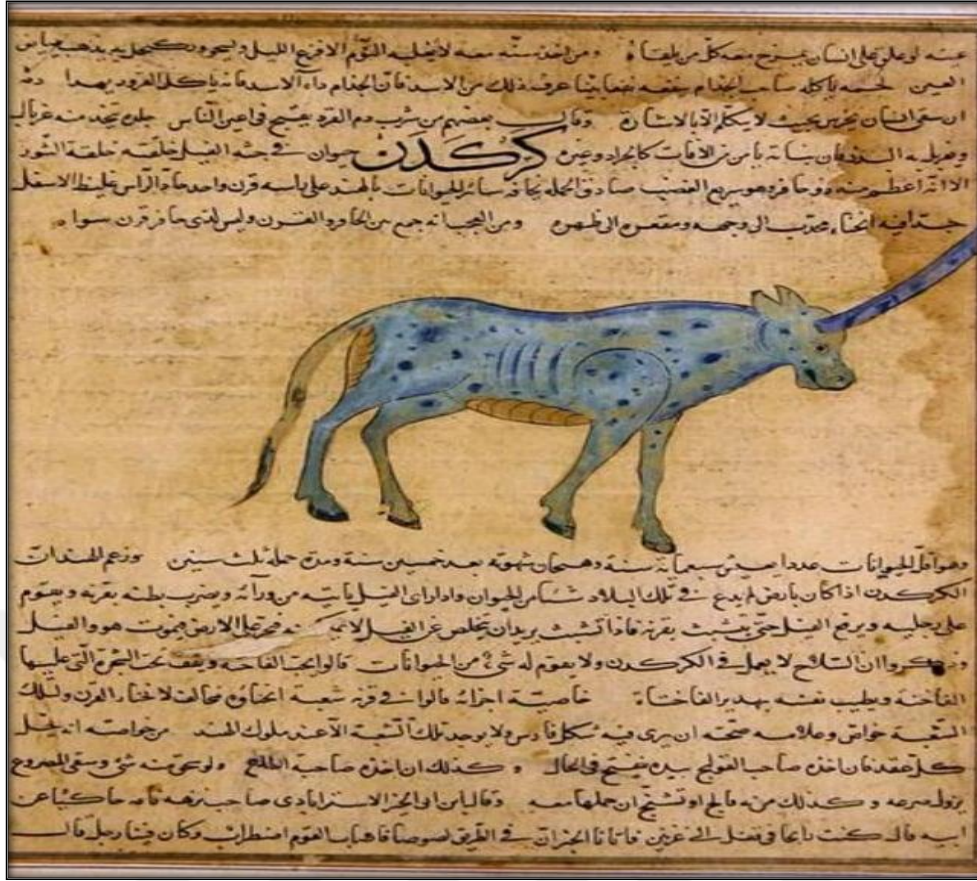 عينه لو علق على انسان يمزح معه كل من يلقاه ومن اخذ سنه معه لا يغلبه النوم ولا فزع الليل
العين لحمه ياكله صاحب الجذام ينفعه نفعا بينا عرف ذلك من الاسد فان الجذام داء الاسد فانه ياكل القرود بهذا
ان سقى انسان يخرس بحيث لا يتكلم الا بالاشارة وقال بعضهم من شرب دم القرد يقبح في اعين الناس جلده يتخذ منه غربال
ويغربل به البذر فان نباته يامن من الافات كالجراد وغيره كركدن حيوان في جثة الفيل خلقته خلقة الثور
الا انه اعظم منه ذو حافر وهو سريع الغضب صادق الحملة يخافه سائر الحيوانات بالهند على راسه قرن واحد حاد الراس غليظ الاسفل
فيه انحناء محدب الى وجهه ومقعره الى ظهره ومن العجب انه جمع بين الحافر والقرن وليس لذي حافر قرن سواه
وهو اقل الحيوانات عددا يعيش سبعمائة سنة وهيجان شهوته بعد خمسين سنة ومدة حمله ثلث سنين وزعم الهند ان
الكركدن اذا كان بارض لم يدع في تلك البلاد شيا من الحيوان واذا راى الفيل ياتيه من ورائه ويضرب بطنه بقرنه ويقوم
على رجليه ويرفع الفيل حتى يتشبث بقرنه فاذا تشبث يريد ان يتخلص عن الفيل لا يمكنه فيخر على الارض فيموت هو والفيل
وذكروا ان السلاح لا يعمل في الكركدن ولا يقوم له شئ من الحيوانات قالوا يحب الفاخته ويقف تحت الشجرة التي عليها
الفاخته ويطيب نفسه بهدير الفاختة خاصية اجزائه قالوا في قرنه شعبة انحناؤه مخالف لانحناء القرن ولتلك
الشعبة خواص وعلامه صحته ان يرى فيه شكل فارس ولا يوجد تلك الشعبة الا عند ملوك الهند من خواصه انه يحل
كل عقد فان اخذه صاحب القولنج بيده يفتح في الحال وكذلك ان اخذه صاحبة الطلق ولو حك منه شئ وسقى المصروع
يزول صرعه وكذلك من به فالج او تشنج ان حملها معه وقال ابن ابي الاسترابادي صاحب نزهه نامه حاكيا عن
ابيه قال كنت في غزنين فاتانا الخبر ان في الطريق لصوصا فاصاب القوم اضطراب وكان فينا رجل قال